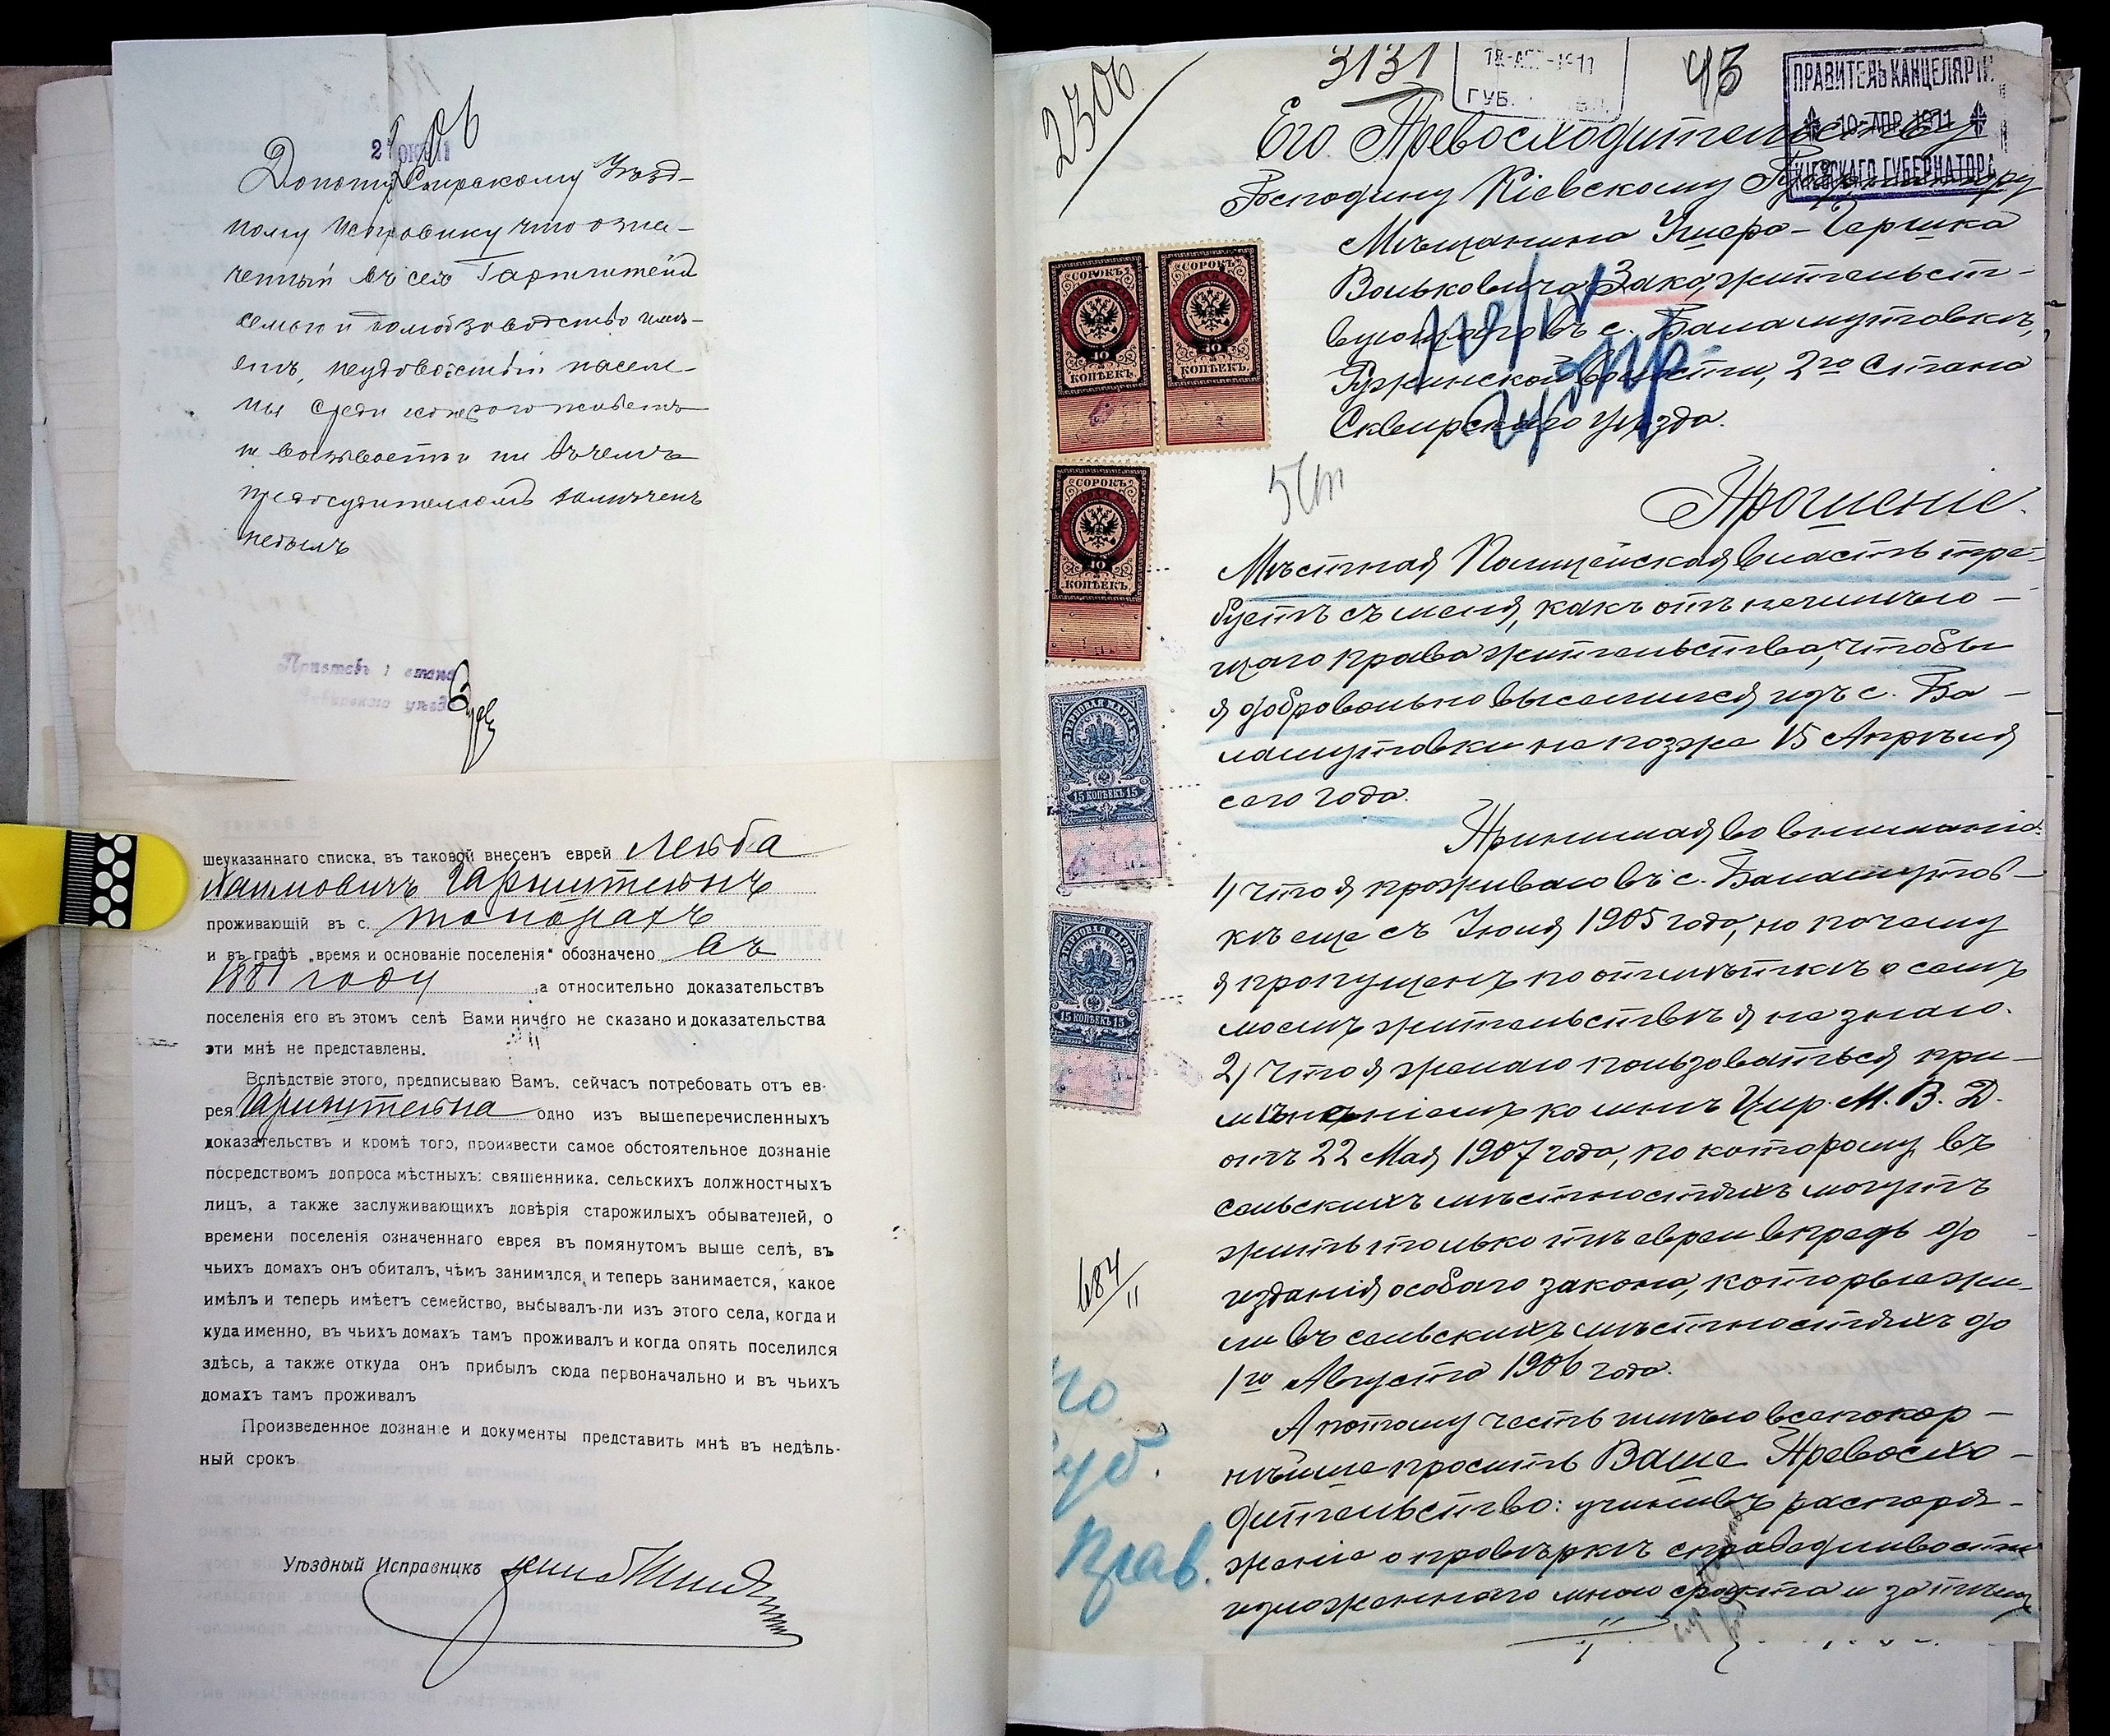 Доношу Сквирскому Уѣзд-
ному Исправнику что озна-
ченный въ семъ Гарнштейнъ
семью и домообзаводство имѣ-
етъ, неудовольствiй населе-
нiя среди котораго живетъ
не вызываетъ и ни въ чемъ
предосудительномъ замѣченъ
небылъ
Приставъ 1 стана
Сквирскаго уѣзда
шеуказаннаго списка, въ таковой внесенъ еврей Лейба
Хаимовичъ Гарнштейнъ
проживающiй въ с.
и въ графѣ „время и основанiе поселенiя“ обозначено въ
1881 году а относительно доказательствъ
поселенiя его въ этомъ селѣ Вами ничего не сказано и доказательства
эти мнѣ не представлены.
Вслѣдствiе этого, предписываю Вамъ, сейчасъ потребовать отъ ев-
рея Гарнштейна одно изъ вышеперечисленныхъ
доказательствъ и кромѣ того, произвести самое обстоятельное дознанiе
посредствомъ допроса мѣстныхъ: священника, сельскихъ должностныхъ
лицъ, а также заслуживающихъ довѣрiя старожилыхъ обывателей, о
времени поселенiя означеннаго еврея въ помянутомъ выше селѣ, въ
чьихъ домахъ онъ обиталъ, чѣмъ занимался, и теперь занимается, какое
имѣлъ и теперь имѣетъ семейство, выбывалъ-ли изъ этого села, когда и
куда именно, въ чьихъ домахъ тамъ проживалъ и когда опять поселился
здѣсь, а также откуда онъ прибылъ сюда первоначально и въ чьихъ
домахъ тамъ проживалъ
Произведенное дознанiе и документы представить мнѣ въ недѣль-
ный срокъ
Уѣздный Исправникъ
2306
3131
18-АПР-1911
ГУБ.
43
ПРАВИТЕЛЬ КАНЦЕЛЯРIИ
10-АПР.1911
КIЕВСКАГО ГУБЕРНАТОРА
Его Превосходительству
Господину Кiевскому Губернатору
Мѣщанина Ушера-Гершка
Вольковича Зака, жительст-
вующаго въ с. Баламутовкѣ,
Ружинской волости, 2го Стана
Сквирскаго уѣзда.
Прошенiе.
Мѣстная Полицейская власть тре-
буетъ съ меня, какъ отъ неимѣю-
щаго права жительства, чтобы
я добровольно выселился изъ с. Ба-
ламутовки не позже 15 Апрѣля
сего года.
Принимая во вниманiе:
1, что я проживаю въ с. Баламутов-
кѣ еще съ Iюня 1905 года, но почему
я пропущенъ по отмѣткѣ о семъ
моемъ жительствѣ я не знаю.
2, что я желаю пользоваться при-
мѣненiемъ ко мнѣ Цир. М. В. Д.
отъ 22 Мая 1907 года, по которому въ
сельскихъ мѣстностяхъ могутъ
жить только тѣ евреи впредь до
изданiя особаго закона, которые жи-
ли въ сельскихъ мѣстностяхъ до
1го Августа 1906 года.
А потому честь имѣю всепокор-
нѣйше просить Ваше Превосхо-
дительство: учинивъ распоря-
женiе о провѣркѣ справедливости
изложеннаго мною факта и затѣмъ
СОРОКЪ
40
КОПѢЕКЪ
СОРОКЪ
40
КОПѢЕКЪ
СОРОКЪ
40
КОПѢЕКЪ
ГЕРБОВАЯ МАРКА
15 КОПѢЕКЪ 15
ГЕРБОВАЯ МАРКА
15 КОПѢЕКЪ 15
684/11
Губ.
Прав.